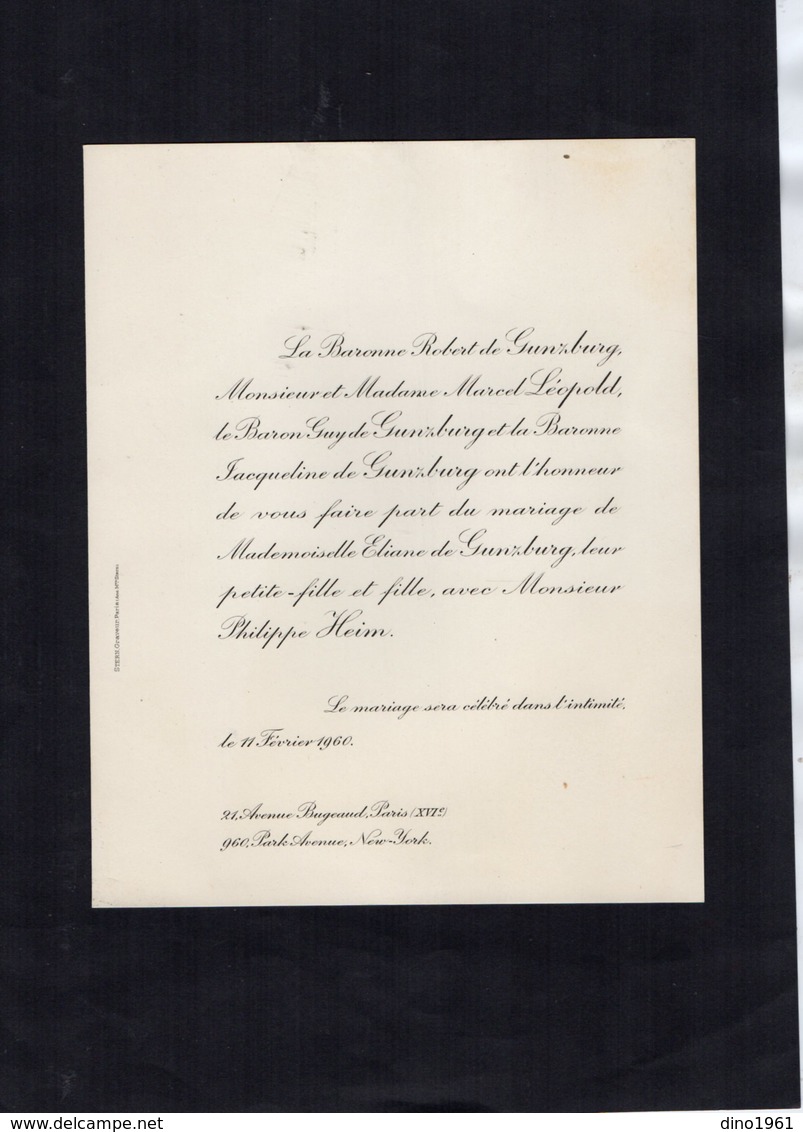 La Baronne Robert de Gunzburg,
Monsieur et Madame Marcel Léopold,
le Baron Guy de Gunzburg et la Baronne
Jacqueline de Gunzburg ont l'honneur
de vous faire part du mariage de
Mademoiselle Eliane de Gunzburg, leur
petite-fille et fille, avec Monsieur
Philippe Heim.
Le mariage sera célébré dans l'intimité,
le 11 Février 1960.
21, Avenue Bugeaud, Paris (XVIe)
960, Park Avenue, New-York.
STERN, Graveur Paris
www.delcampe.net
dino1961